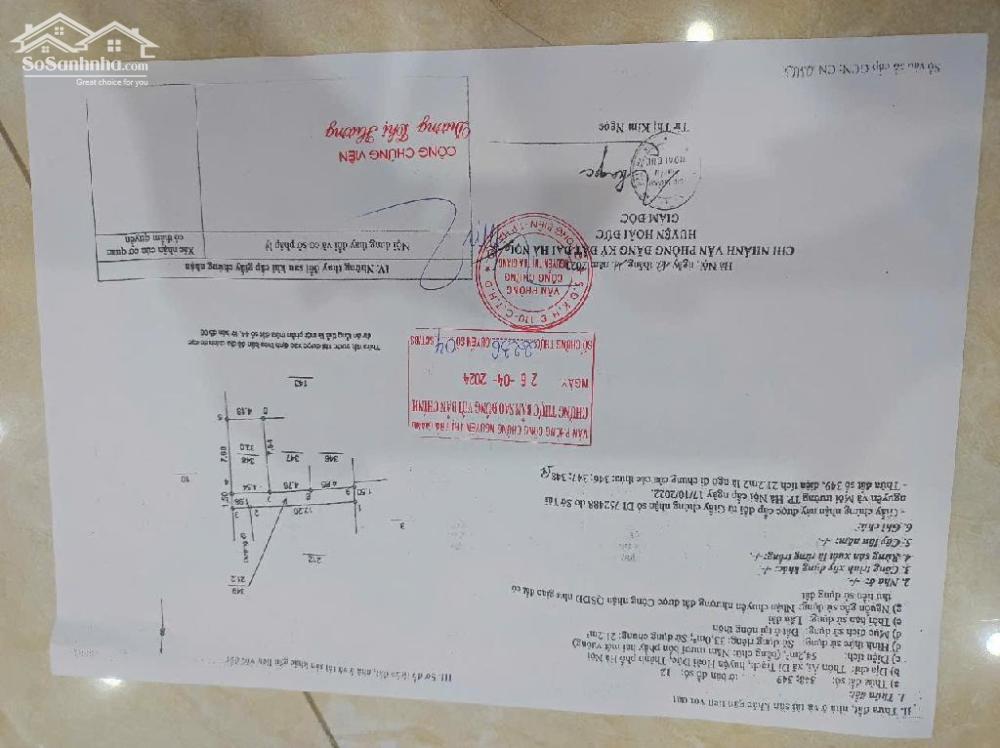 SoSanhnha.com
Great choice for you
II. Thửa đất, nhà ở và tài sản khác gắn liền với đất
1. Thửa đất:
a) Thửa đất số: 348; 349 tờ bản đồ số: 12
b) Địa chỉ: Thôn Ải, xã Di Trạch, huyện Hoài Đức, Thành phố Hà Nội
c) Diện tích: 54,2m², (bằng chữ: Năm mươi bốn phẩy hai mét vuông)
d) Hình thức sử dụng: Sử dụng riêng: 33,0m²; Sử dụng chung: 21,2m²
đ) Mục đích sử dụng: Đất ở tại nông thôn
e) Thời hạn sử dụng: Lâu dài
g) Nguồn gốc sử dụng: Nhận chuyển nhượng đất được Công nhận QSDĐ như giao đất có
thu tiền sử dụng đất
2. Nhà ở: -/-
3. Công trình xây dựng khác: -/-
4. Rừng sản xuất là rừng trồng: -/-
5. Cây lâu năm: -/-
6. Ghi chú:
- Giấy chứng nhận này được cấp đổi từ Giấy chứng nhận số DI 752488 do Sở Tài
nguyên và Môi trường TP Hà Nội cấp ngày 17/10/2022.
- Thửa đất số 349, diện tích 21.2m2 là ngõ đi chung của các thửa: 346; 347; 348
VĂN PHÒNG CÔNG CHỨNG NGUYỄN THỊ TRÀ GIANG
CHỨNG THỰC BẢN SAO ĐÚNG VỚI BẢN CHÍNH
NGÀY 26-04-2024
SỐ CHỨNG THỰC 2236 QUYỂN SỐ 04 SCT/BS
Hà Nội, ngày tháng năm
CHI NHÁNH VĂN PHÒNG ĐĂNG KÝ ĐẤT ĐAI HÀ NỘI
HUYỆN HOÀI ĐỨC
GIÁM ĐỐC
Từ Thị Kim Ngọc
Số vào sổ cấp GCN: CN
III. Sơ đồ thửa đất, nhà ở và tài sản khác gắn liền với đất
B
349
21.2
212
3
10
1
2
3
17.20
1.98
1.50
1.50
4
4.54
7
4.76
8
4.85
9
348
33.0
347
346
7.60
7.64
5
4.18
6
143
IV. Những thay đổi sau khi cấp giấy chứng nhận
Nội dung thay đổi và cơ sở pháp lý
Xác nhận của cơ quan
có thẩm quyền
VĂN PHÒNG
CÔNG CHỨNG
NGUYỄN THỊ TRÀ GIANG
CÔNG CHỨNG VIÊN
Dương Thị Hương